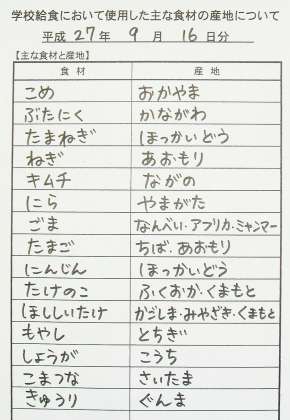 学校給食において使用した主な食材の産地について
平成 27 年 9 月 16 日分
【主な食材と産地】
食材 産地
こめ おかやま
ぶたにく かながわ
たまねぎ ほっかいどう
ねぎ あおもり
キムチ ながの
にら やまがた
ごま なんべい・アフリカ・ミャンマー
たまご ちば・あおもり
にんじん ほっかいどう
たけのこ ふくおか・くまもと
ほししいたけ かごしま・みやざき・くまもと
もやし とちぎ
しょうが こうち
こまつな さいたま
きゅうり ぐんま